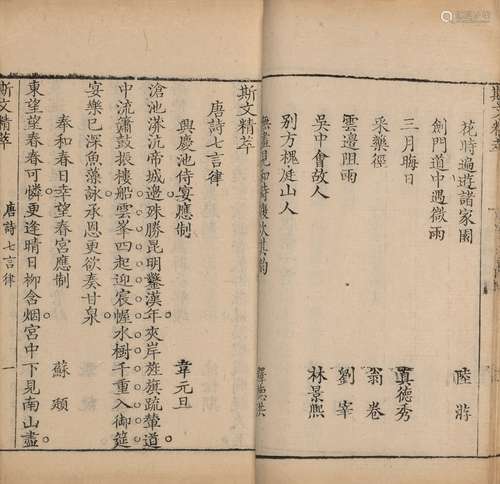 花時遍遊諸家園 陸游
劍門道中遇微雨
三月晦日 真德秀
采藥徑 翁卷
雲邊阻雨 劉宰
吳中會故人 林景熙
別方槐庭山人
斯文精萃
唐詩七言律
興慶池侍宴應制 韋元旦
滄池漭沆帝城邊殊勝昆明鑿漢年夾岸旌旗疏輦道
中流簫鼓振樓船雲峯四起迎宸幄水樹千重入御筵
宴樂已深魚藻詠承恩更欲奏甘泉
奉和春日幸望春宮應制 蘇頲
東望望春春可憐更逢晴日柳含烟宮中下見南山盡
斯文精萃 唐詩七言律 一